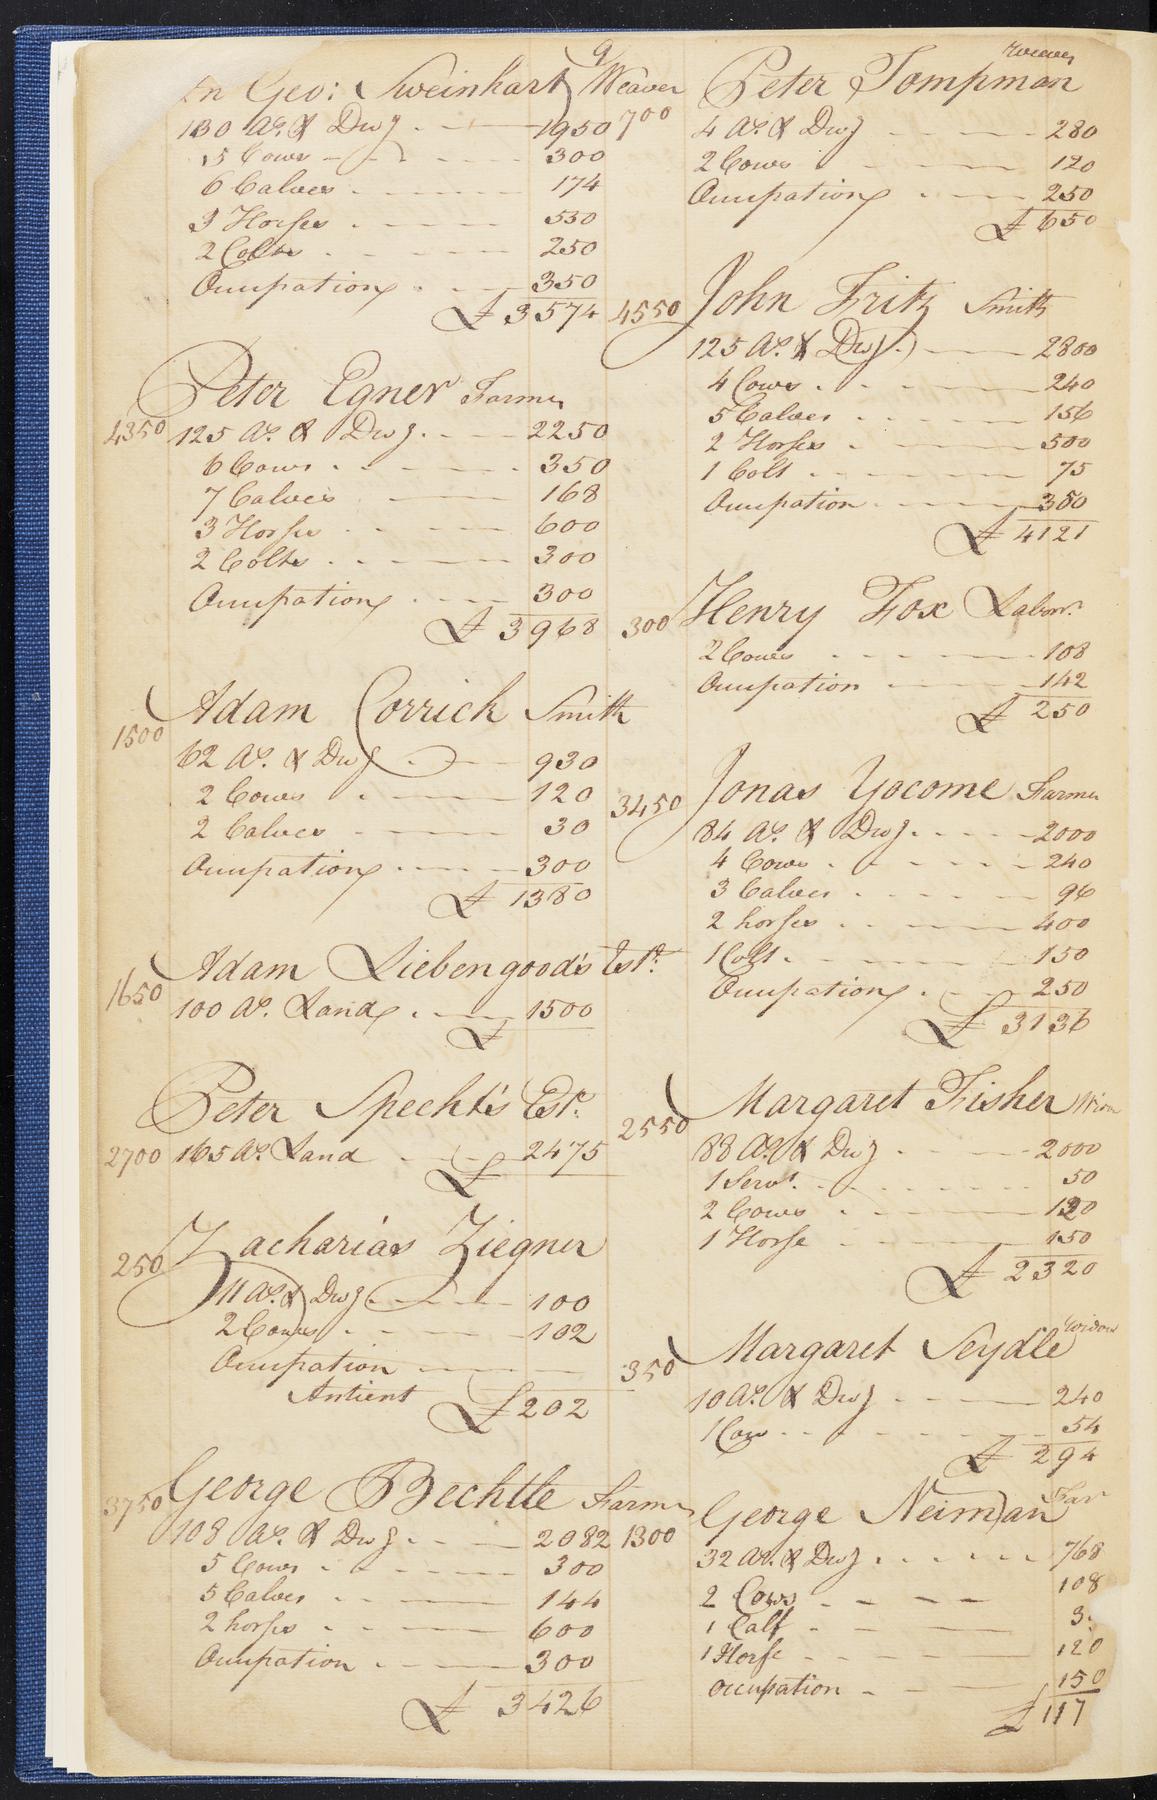 9
Geo: Sweinhart Weaver
130 As. & Dwg 1950
5 Cows 300
6 Calves 174
3 Horses 530
2 Colts 250
Occupation 350
£ 3574
Peter Egner Farmer
4350 125 As. & Dwg. 2250
6 Cows 350
7 Calves 168
3 Horses 600
2 Colts 300
Occupation 300
£ 3968
Adam Corrick Smith
1500
62 As. & Dwg 930
2 Cows 120
2 Calves 30
Occupation 300
£ 1380
Adam Liebengood's Est.
1650
100 As. Land 1500
£
Peter Specht's Est.
2700 165 As. Land 2475
£
Zacharias Ziegner
250
11 As. & Dwg 100
2 Cows 102
Occupation
Antient £ 202
George Bechtle Farmer
3750
108 As. & Dwg 2082
5 Cows 300
5 Calves 144
2 horses 600
Occupation 300
£ 3426
Weaver
Peter Tompman
700
4 As. & Dwg 280
2 Cows 120
Occupation 250
£ 650
John Fritz Smith
4550
125 As. & Dwg. 2800
4 Cows 240
5 Calves 156
2 Horses 500
1 Colt 75
Occupation 350
£ 4121
Henry Fox Labor.
300
2 Cows 108
Occupation 142
£ 250
Jonas Yocome Farmer
3450
84 As. & Dwg. 2000
4 Cows 240
3 Calves 96
2 horses 400
1 Colt 150
Occupation 250
£ 3136
Margaret Fisher
2550
88 As. & Dwg 2000
1 Servt. 50
2 Cows 120
1 Horse 150
£ 2320
Widow
Margaret Seydle
350
10 As. & Dwg 240
1 Cow 54
£ 294
Far
George Neiman
1300
32 As. & Dwg 768
2 Cows 108
1 Calf 3
1 Horse 120
occupation 150
£ 117